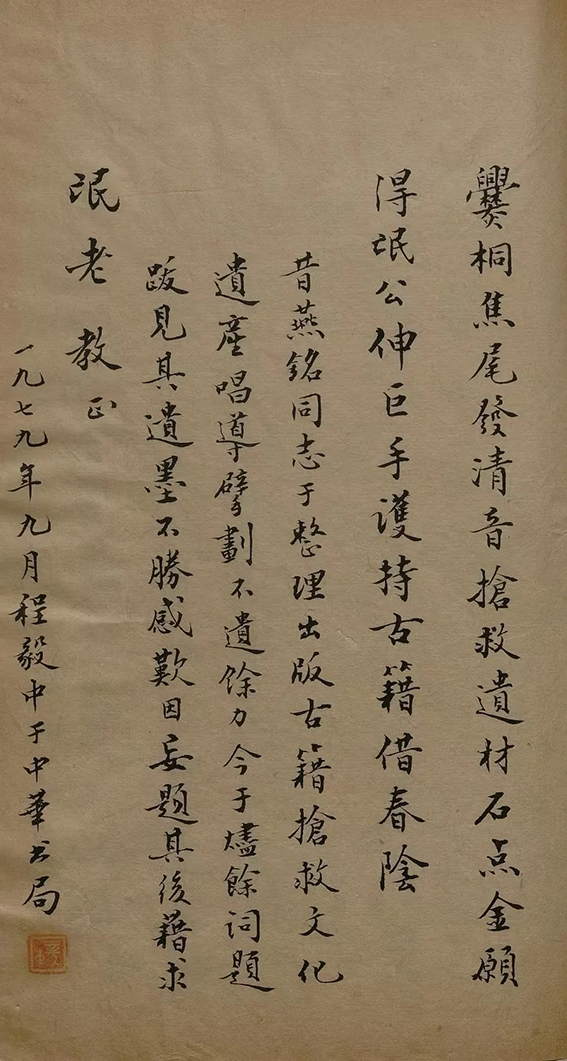 爨桐焦尾發清音搶救遺材石点金願
得氓公伸巨手護持古籍借春陰
昔燕銘同志于整理出版古籍搶救文化
遺產唱導擘劃不遺餘力今于燼餘詞題
跋見其遺墨不勝感歎因妄題其後藉求
泯老教正
一九七九年九月程毅中于中華书局